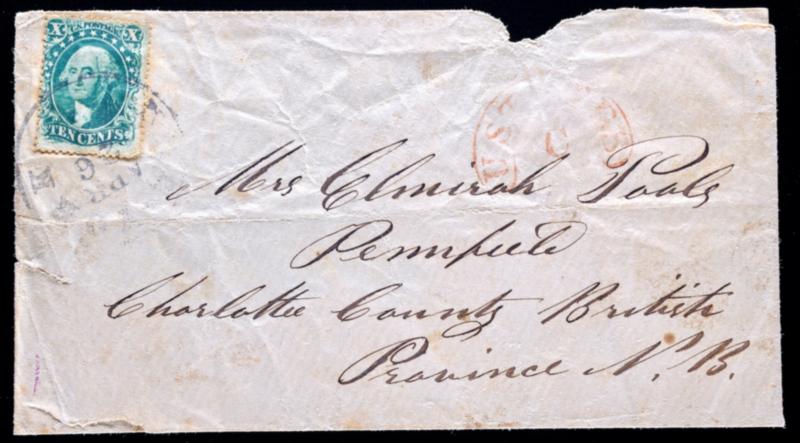 X U.S. POSTAGE X
TEN CENTS
APR
6
Mrs Elmirah Pools
Pennfield
Charlotte County British
Province N.B.